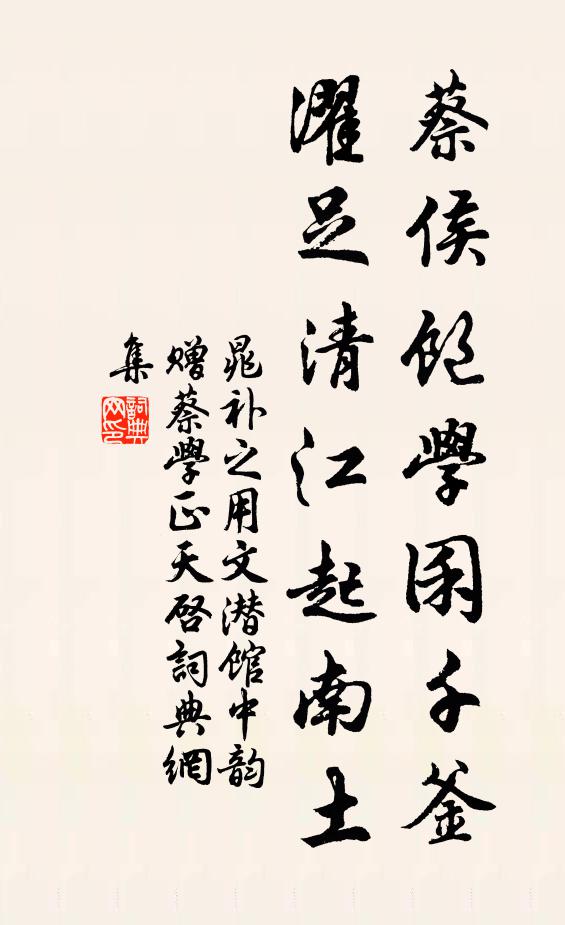 蔡侯飽學困千釜
濯足清江起南土
晁补之用文潜館中韵
贈蔡學正天啓詞典網
集
詞典
网印